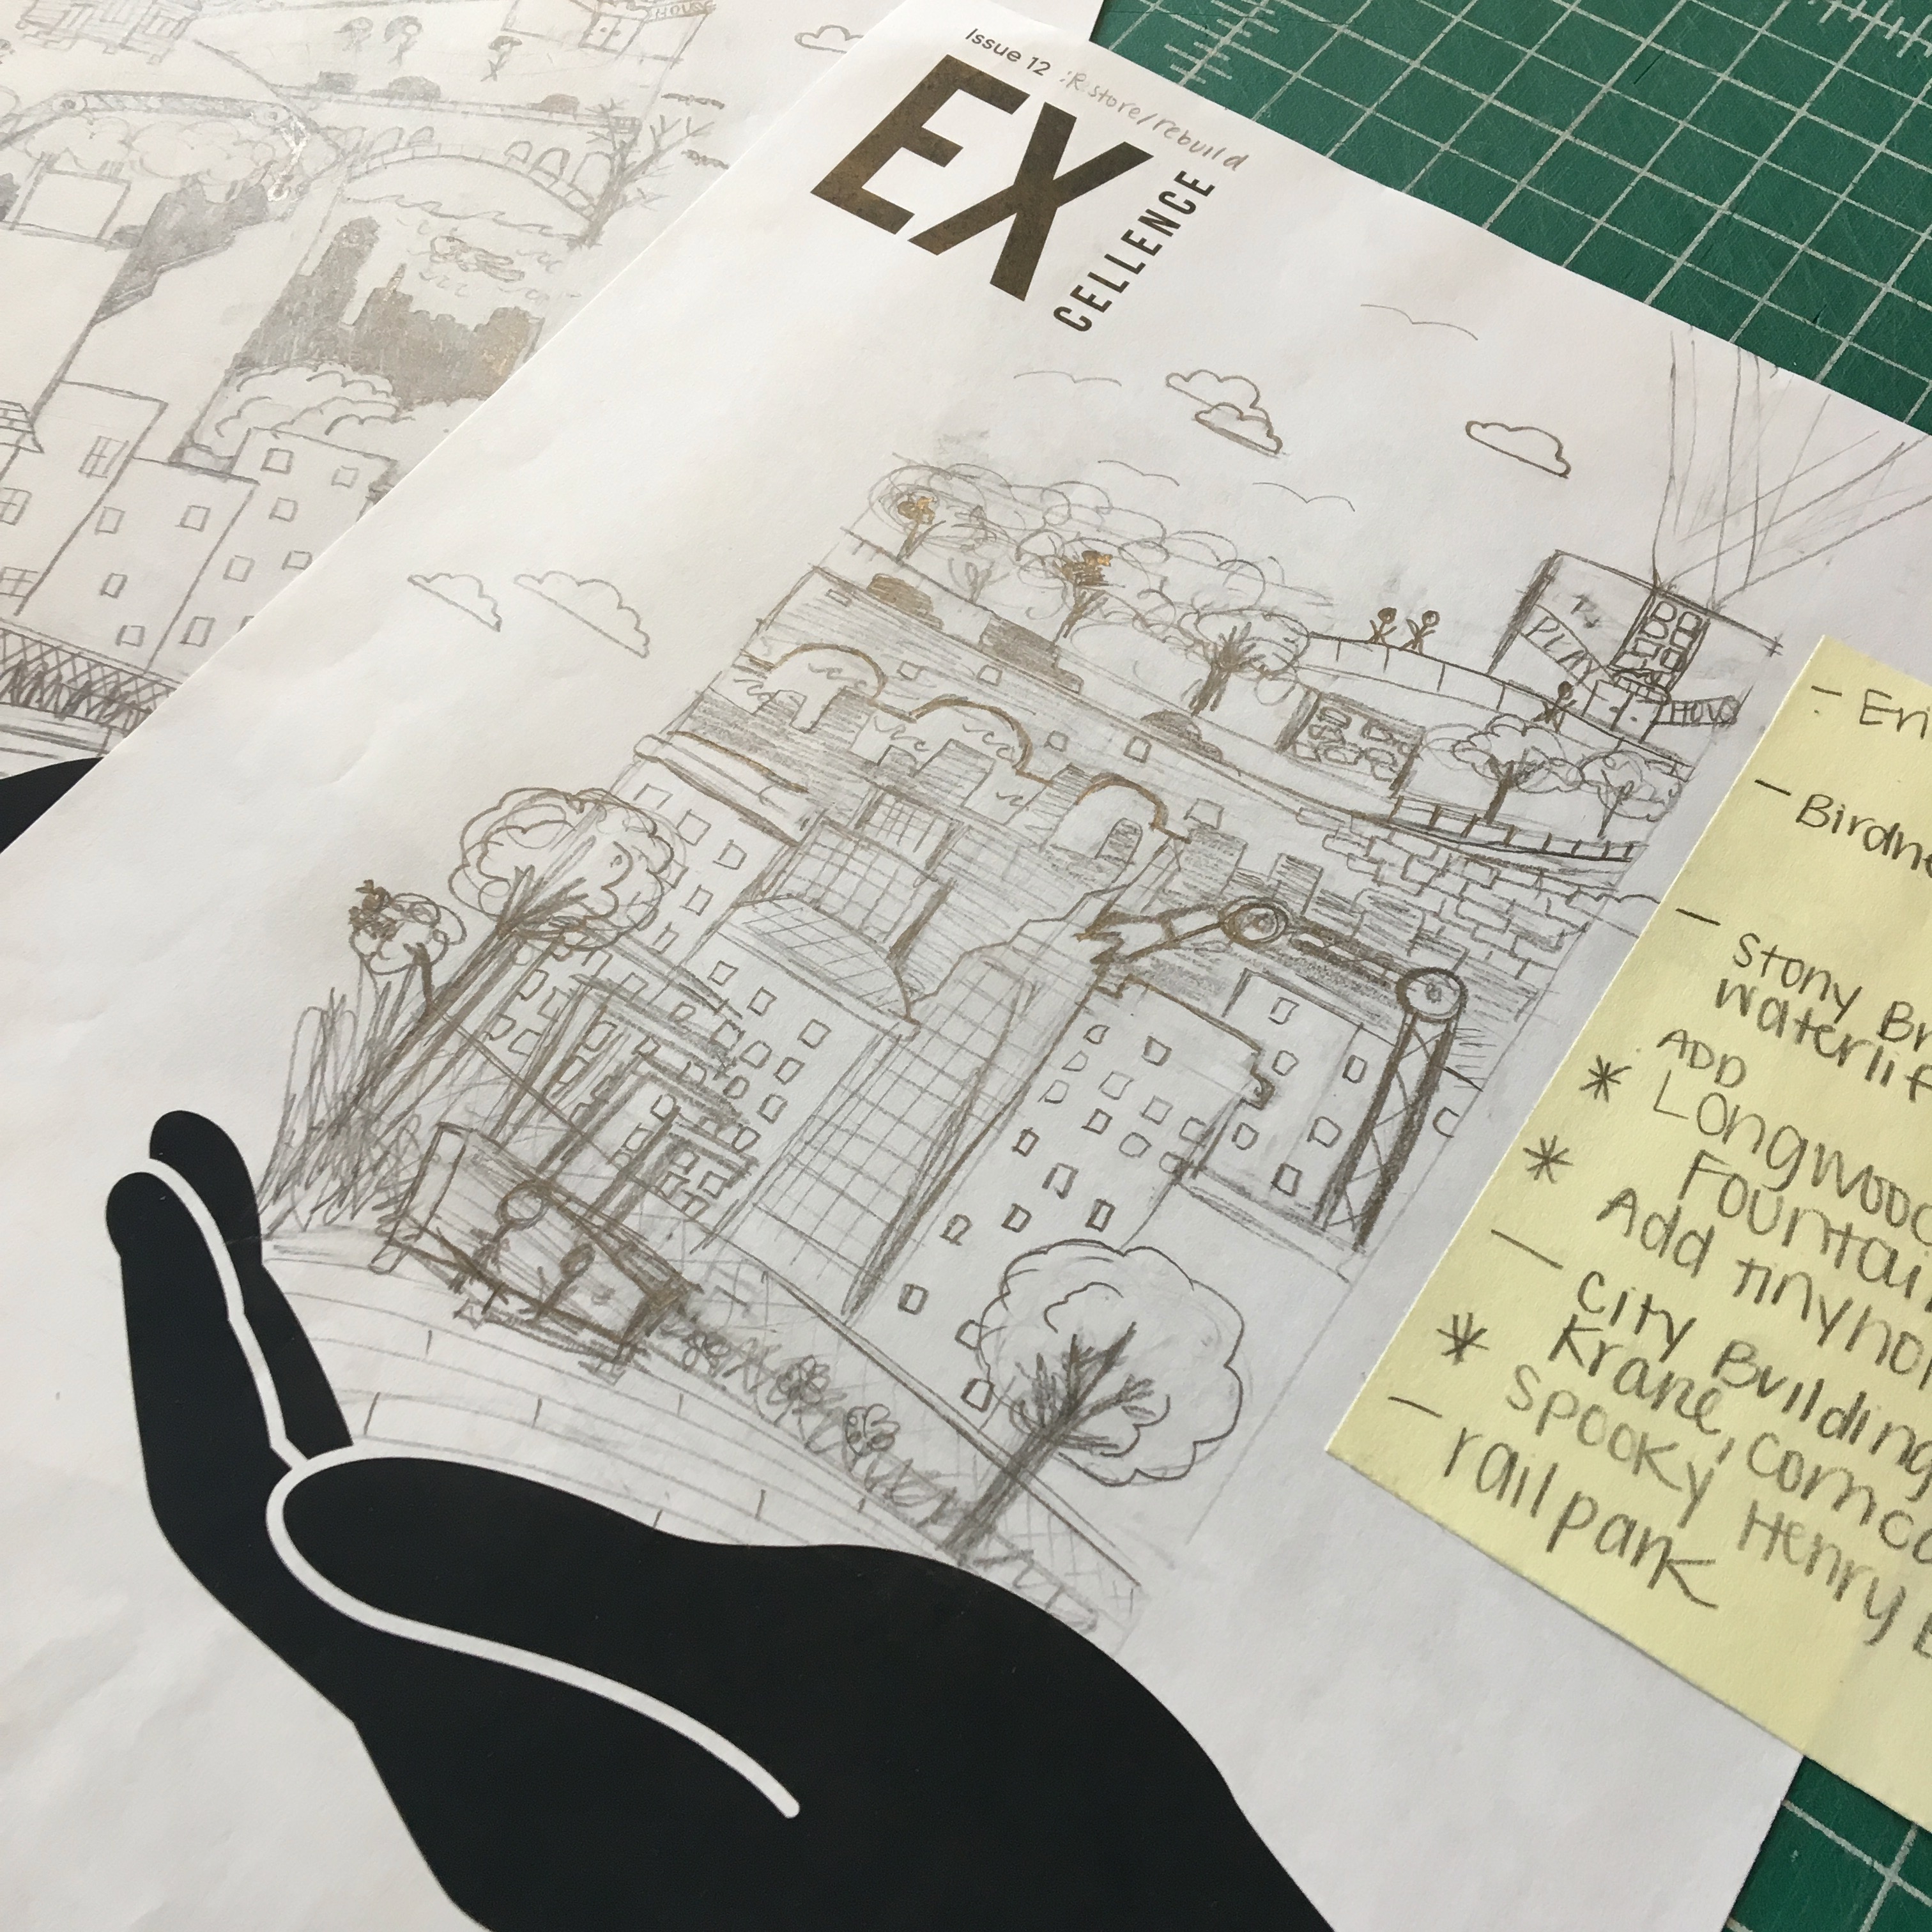 Issue 12 :Restore/rebuild
EX
CELLENCE
PLAY
HOUS
HOUSE
- Eri
- Birdne
- Stony Br
waterlif
ADD
* Longwood
Fountai
* Add tinyho
- City Building
* Krane, cornc
Spooky Henry B
- railpark